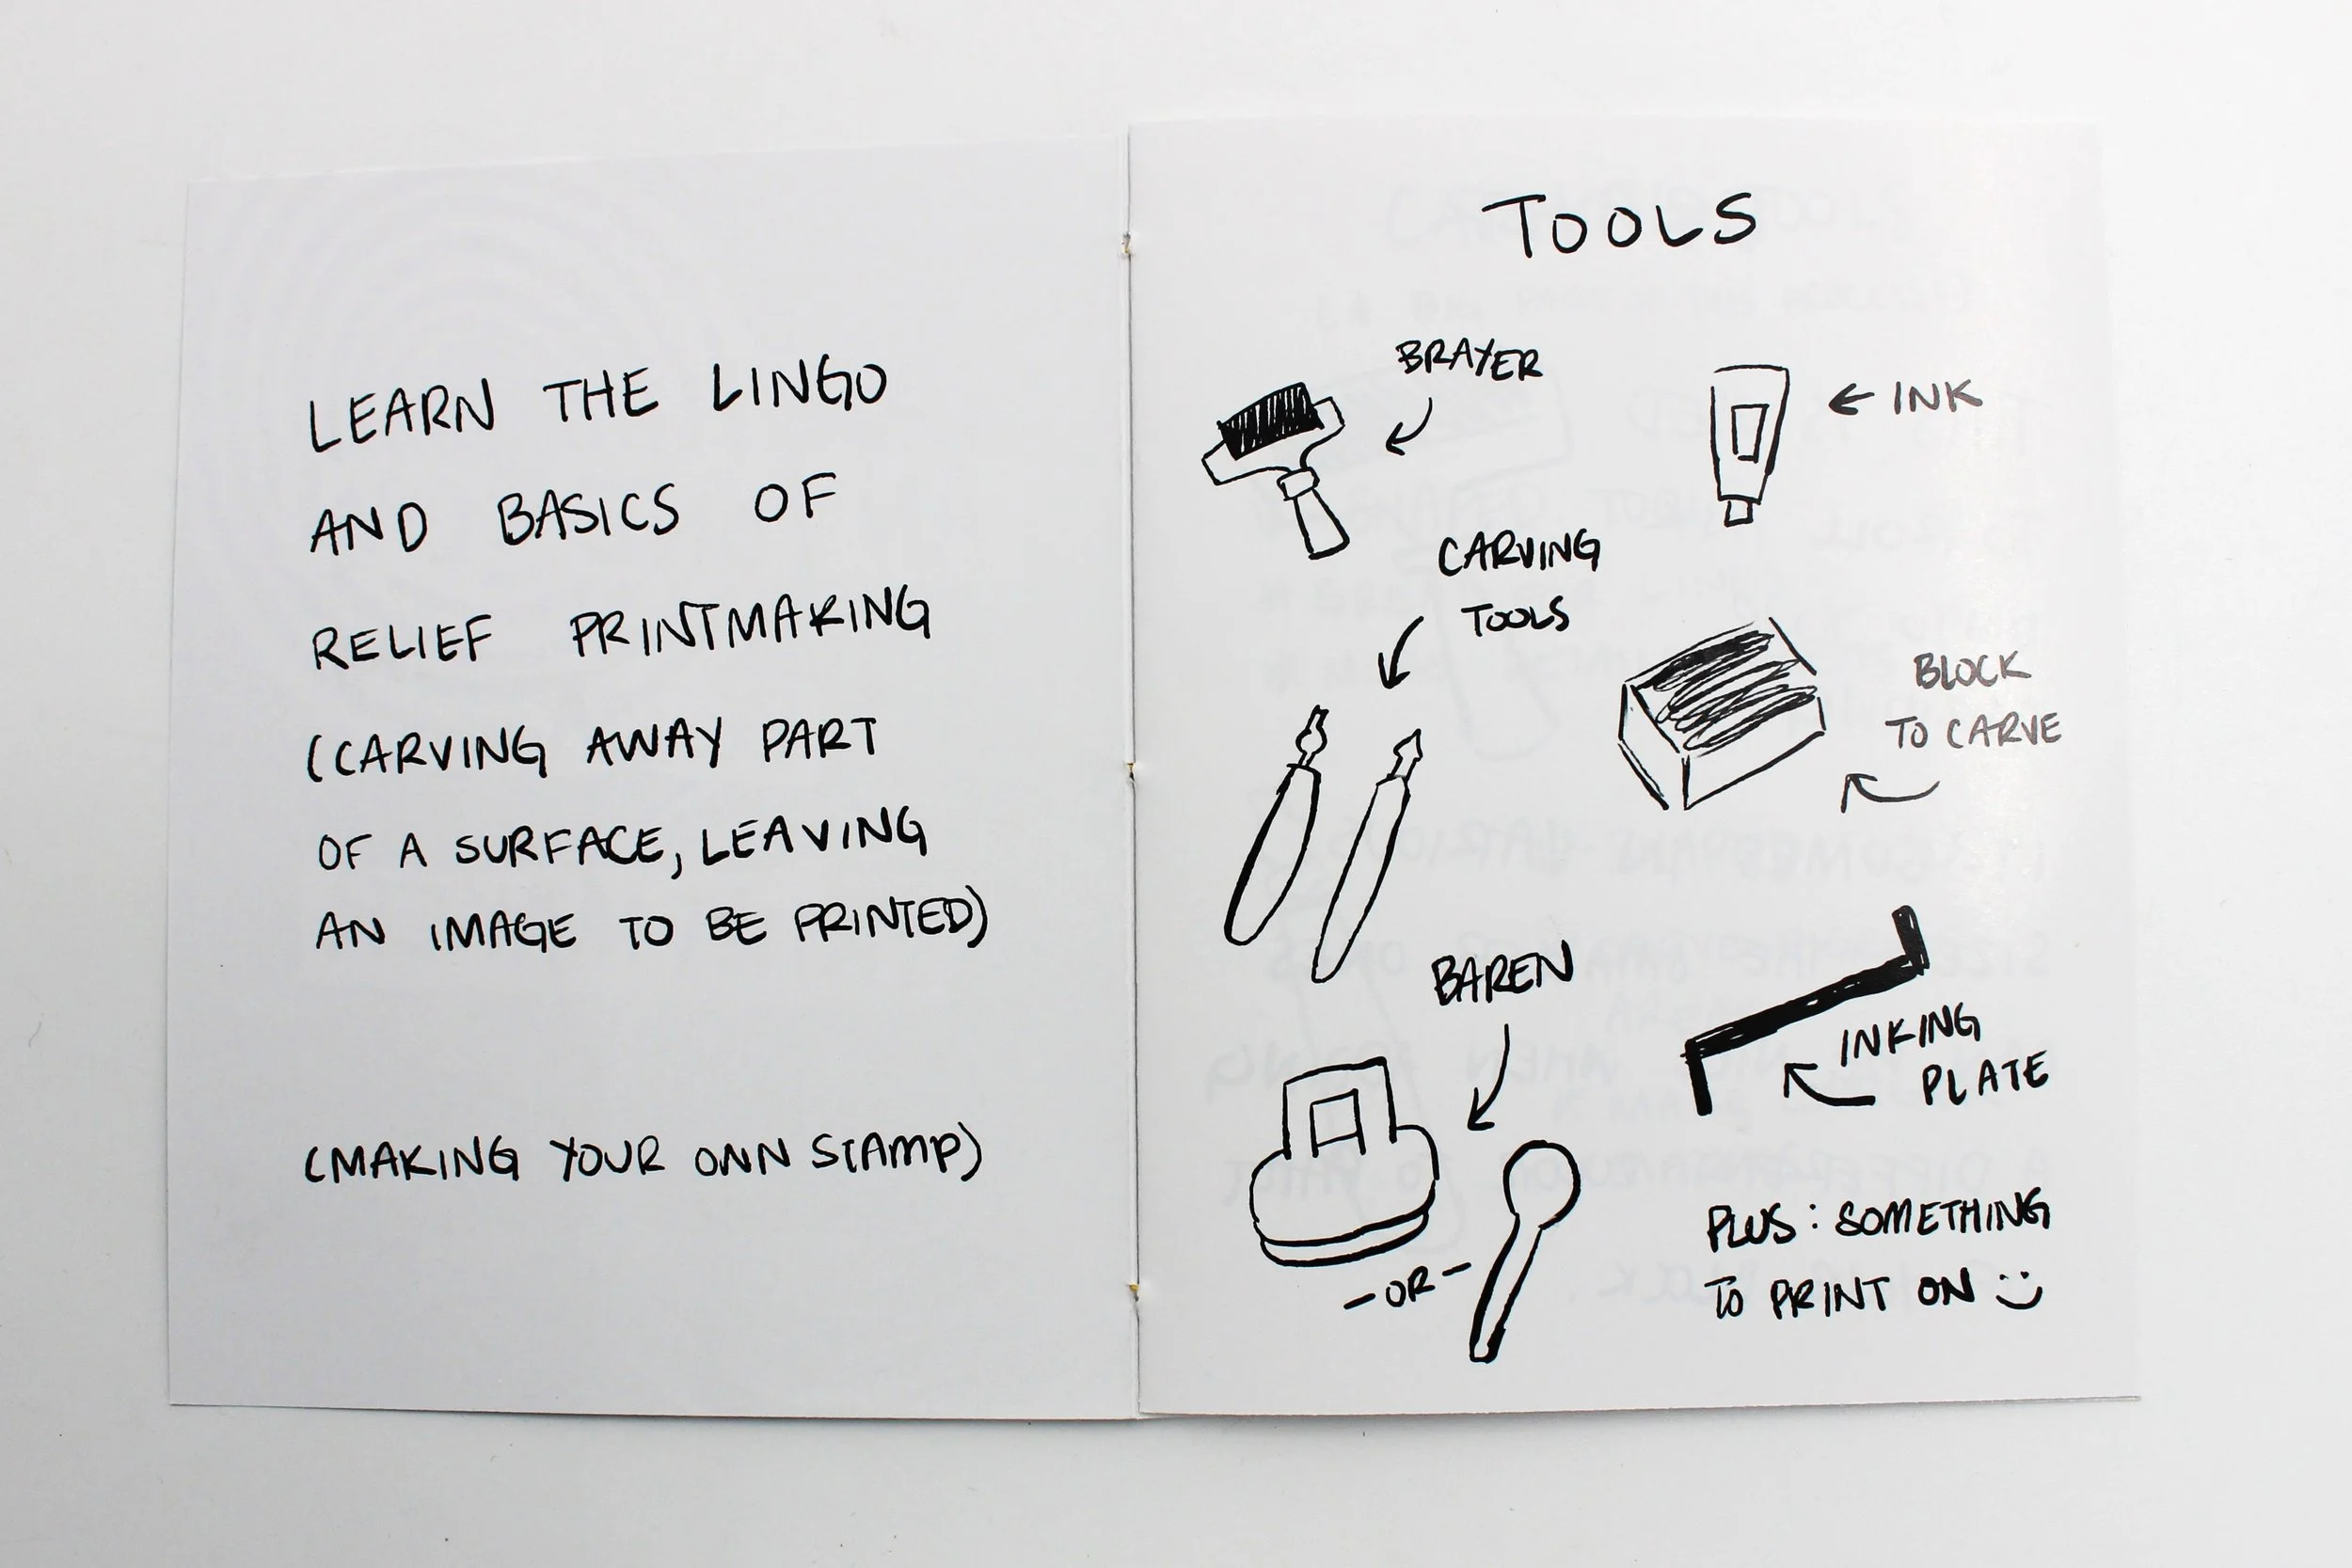 LEARN THE LINGO
AND BASICS OF
RELIEF PRINTMAKING
(CARVING AWAY PART
OF A SURFACE, LEAVING
AN IMAGE TO BE PRINTED)
(MAKING YOUR OWN STAMP)
TOOLS
BRAYER
INK
CARVING
TOOLS
BLOCK
TO CARVE
BAREN
INKING
PLATE
-OR-
PLUS: SOMETHING
TO PRINT ON :)